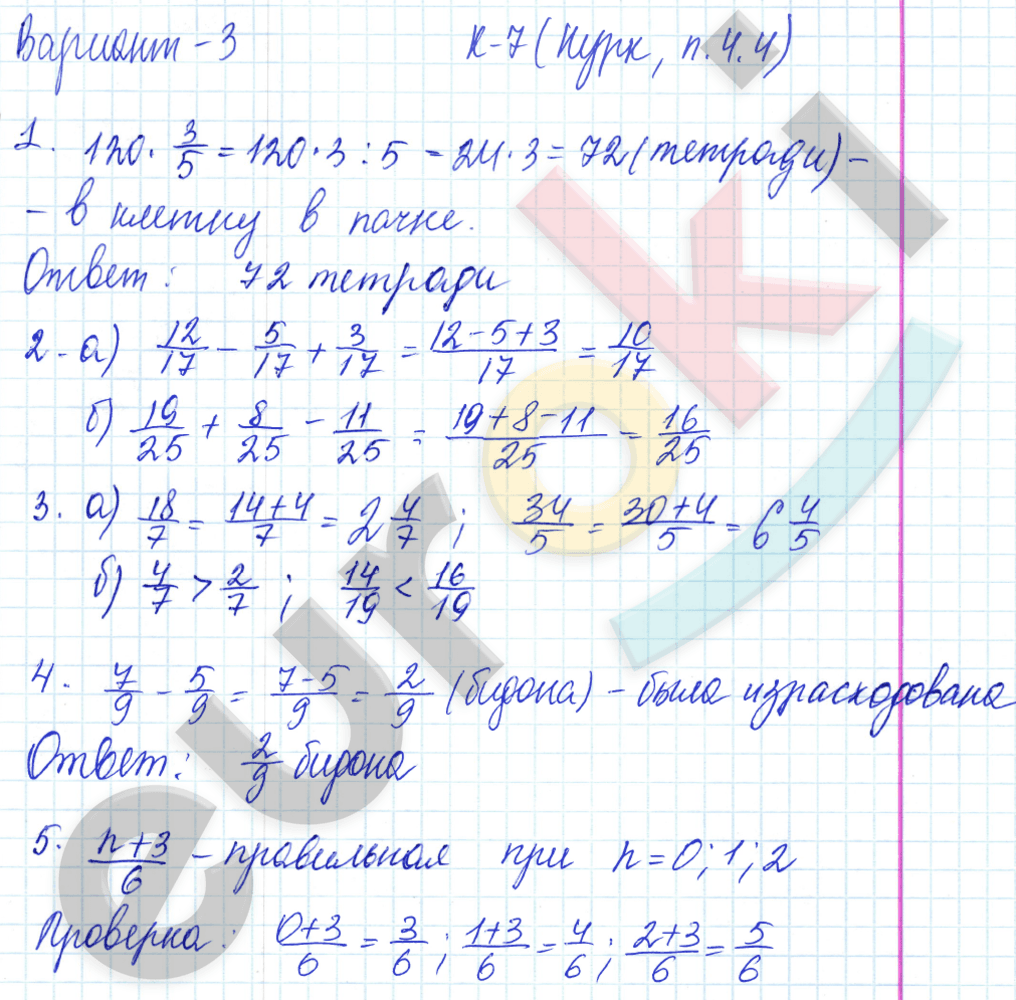 Вариант-3 К-7 (Нурк, п.4.4)
1. 120·3/5=120·3:5-24·3=72(тетради)-
- в клетку в пачке.
Ответ: 72 тетради
2-а) 12/17-5/17+3/17=(12-5+3)/17=10/17
б) 19/25+8/25-11/25=(19+8-11)/25=16/25
3. а) 18/7=(14+4)/7=2 4/7; 34/5=(30+4)/5=6 4/5
б) 4/7>2/7; 14/19<16/19
4. 7/9-5/9=(7-5)/9=2/9 (бидона)-была израсходована
Ответ: 2/9 бидона
5. (n+3)/6 -правильная при n=0;1;2
Проверка: (0+3)/6=3/6; (1+3)/6=4/6; (2+3)/6=5/6
euroki